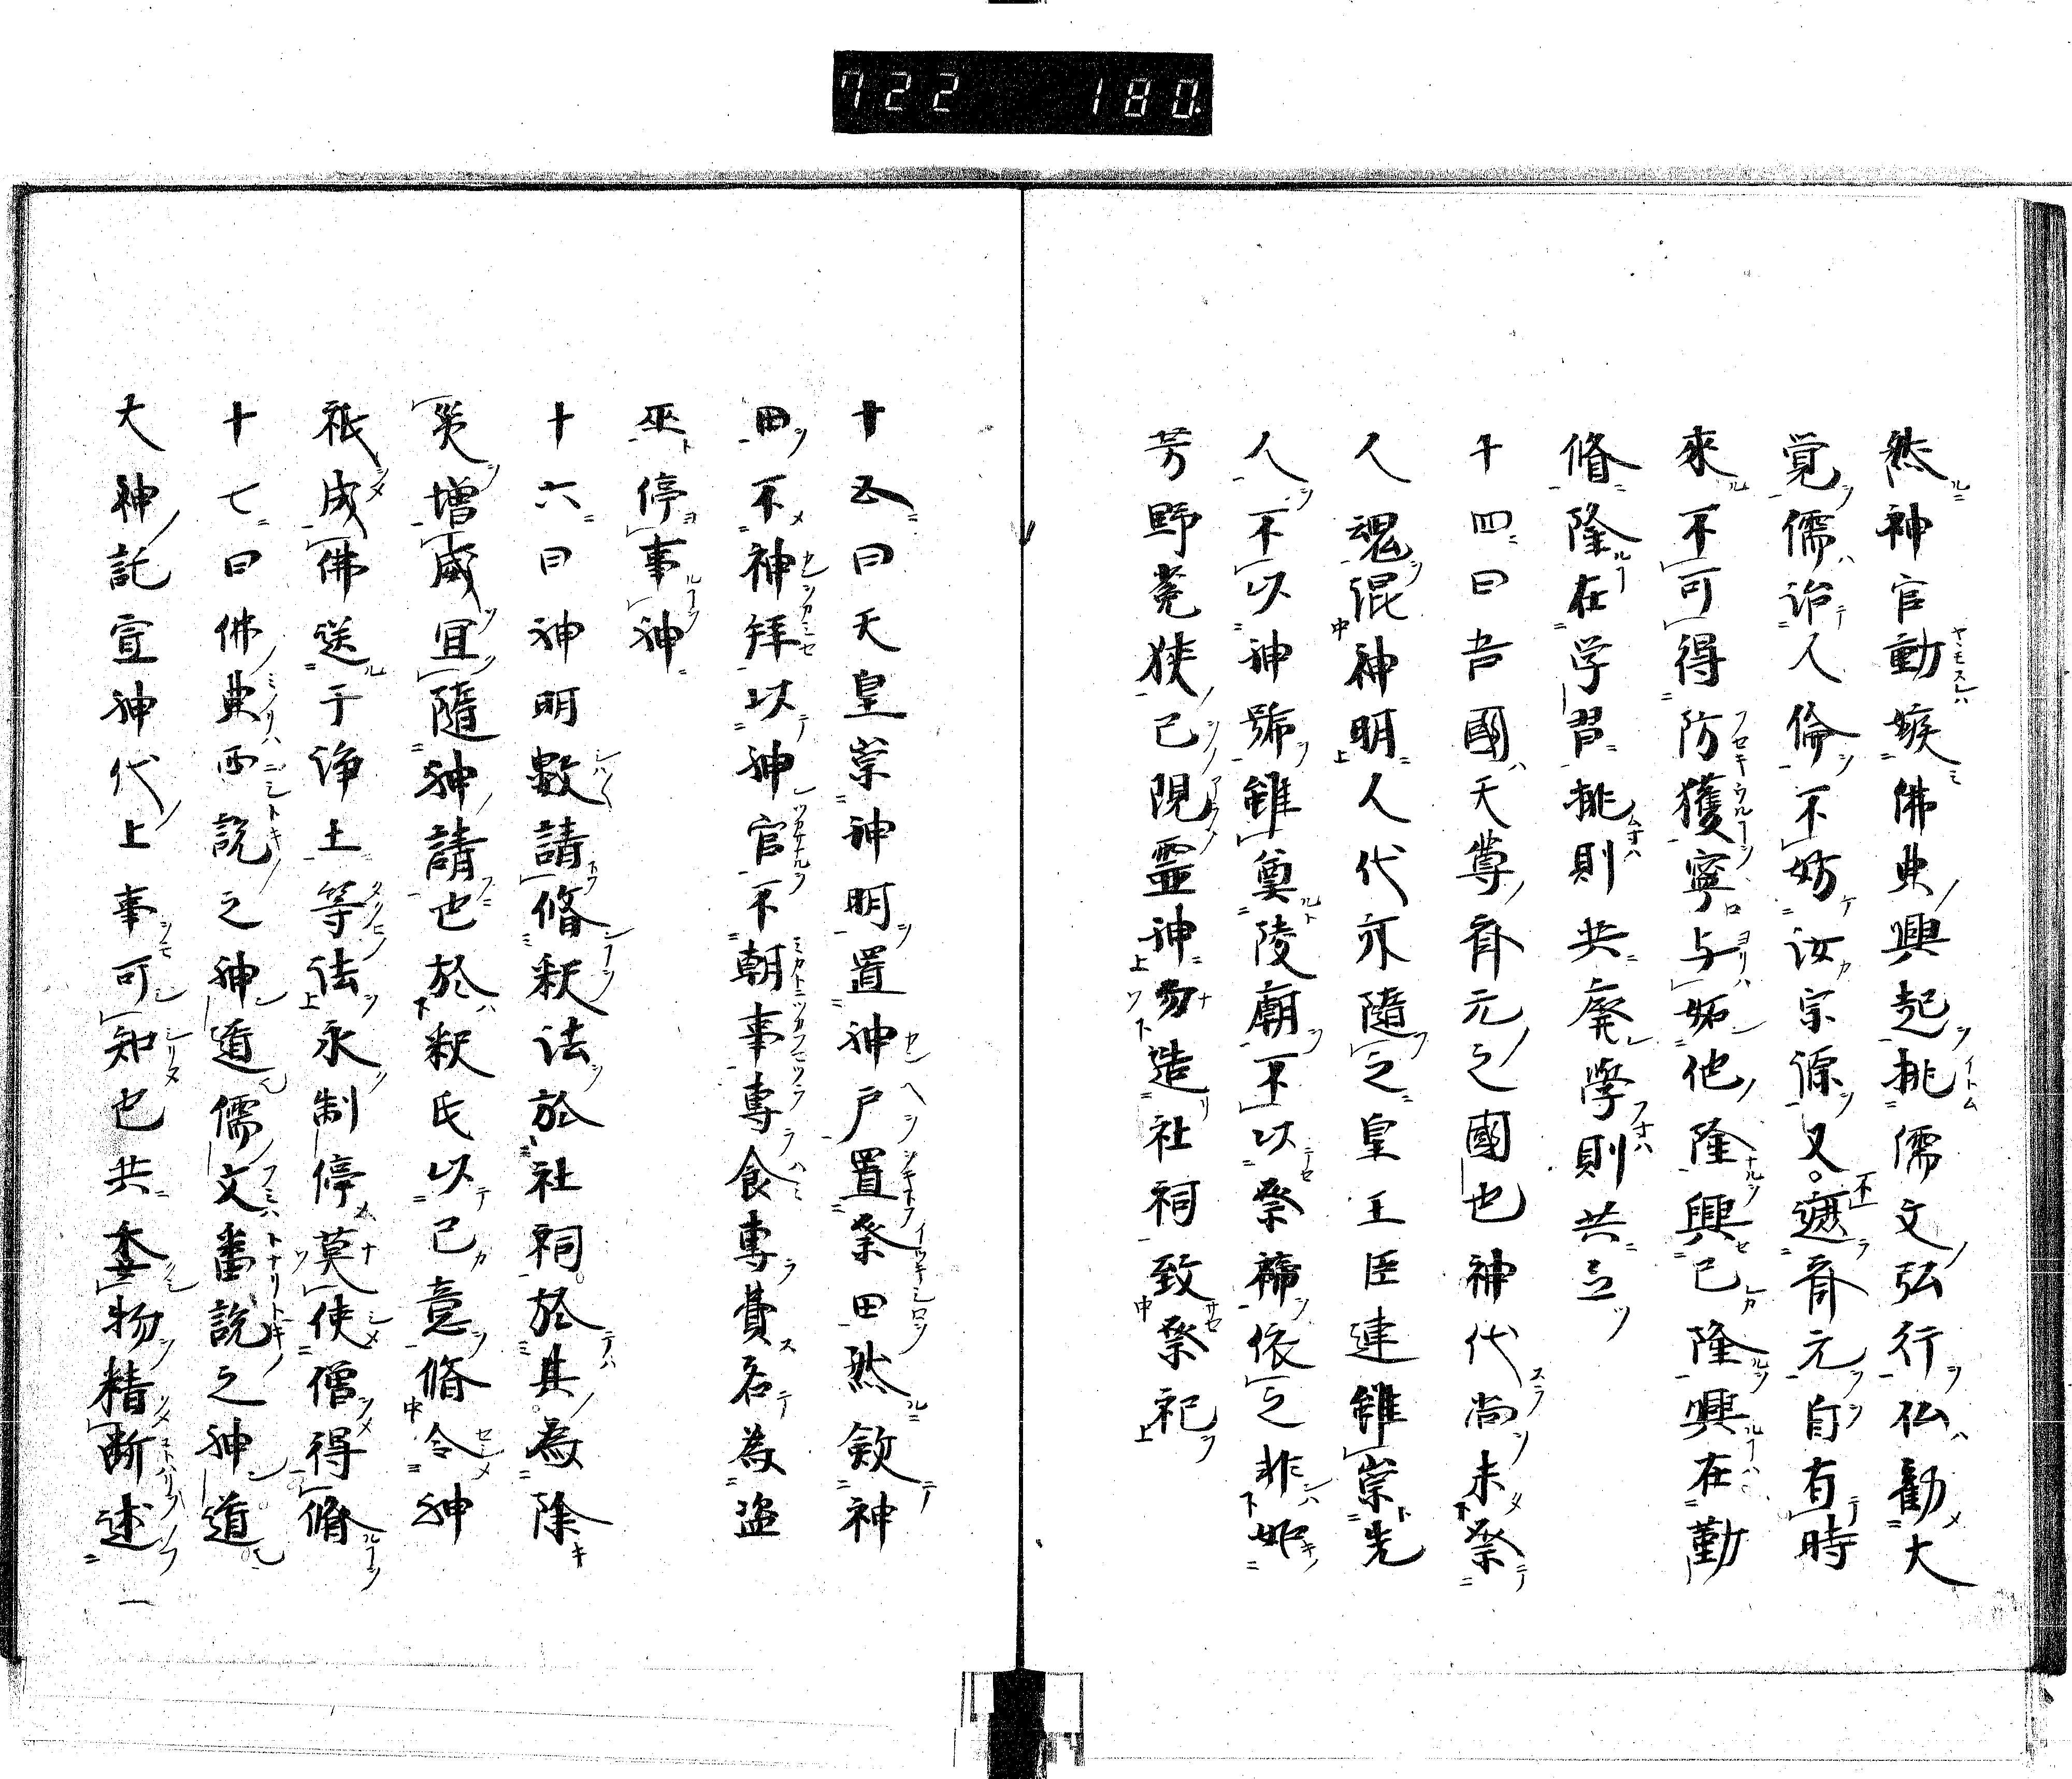 722 180
然神官動嫉佛典興起挑儒文弘行仏勧大
覚儒治人倫不妨汝宗源又不遮斉元自有時
來不可得防獲寧与妬他隆興己隆興在勤
脩隆在学習挑則共廃学則共立
十四曰吾國天尊斉元之國也神代尚未祭
人魂混神明人代亦随之皇王臣連雖崇先
人不以神號雖奠陵廟不以祭禘依之非如
芳野菟狭己隈霊神勿造社祠致祭祀
十五曰天皇崇神明置神戸置祭田然斂神
田不神拜以神官不朝事専食専費名為盗
巫停事神
十六曰神明數請脩釈法於社祠於其為除
災増威冝随神請也於釈氏以己意脩令神
祇成佛送于浄土等法永制停莫使僧得脩
十七曰佛典西説之神道儒文番説之神道
大神託宣神代上事可知也共夲物精断述